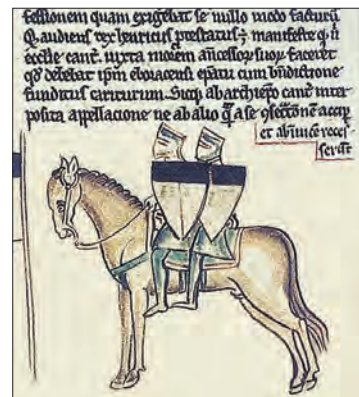 fessionem quam exigebat se nullo modo facturũ
Q̃ audiens rex henricus ptestatus ÷ manifeste q̃ ñ
ecclie canť. iuxta morem ancessoꝝ suoꝝ faceret
qđ debebat ipm eboracensi epatu cum bñdictione
funditus cariturum. Sicq; ab archiepo canť inter
posita appellacione ne ab alio q̃ a se
et ab recef
serunt